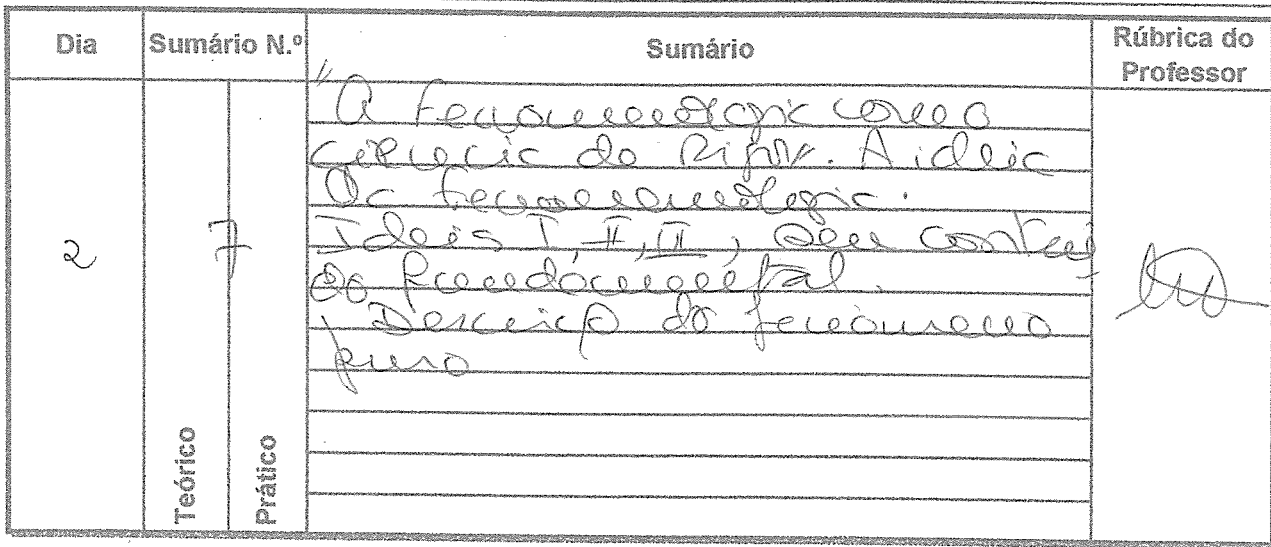 Dia Sumário N.º Sumário Rúbrica do Professor
2 7
"A fenomenologia como
ciência do rigor. A ideia
da fenomenologia.
Ideias I, II, III, seu conteú
do fundamental.
Descrição do fenómeno
puro
Teórico
Prático